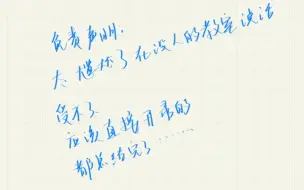 免责声明:
太尴尬了在没人的教室谈话
受不了
应该直接开录的
都总结完了……